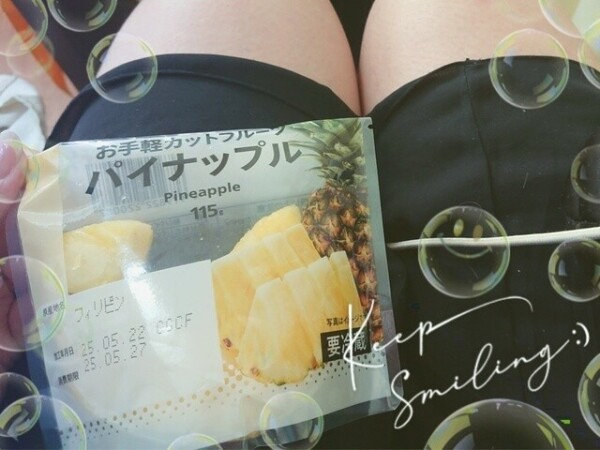 お手軽カットフルーツ
パイナップル
Pineapple
115g
フィリピン
加工年月日 25.05.22 CCCF
消費期限 25.05.27
写真はイメージ
要冷蔵
Keep
Smiling:)